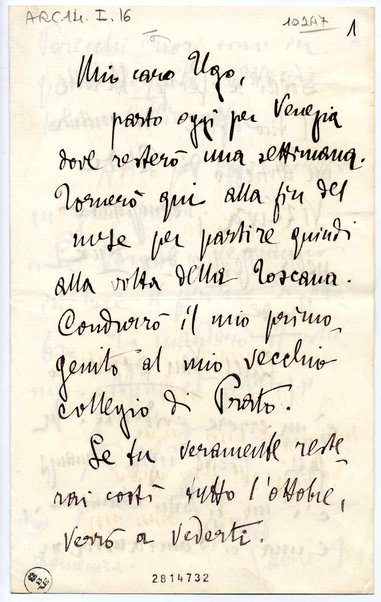 ARC14. I. 16
102A7
1
Mio caro Ugo,
parto oggi per Venezia
dove resterò una settimana.
Tornerò qui alla fin del
mese per partire quindi
alla volta della Toscana.
Condurrò il mio primo-
genito al mio vecchio
collegio di Prato.
Se tu veramente reste-
rai costì tutto l'ottobre,
verrò a vederti.
2814732